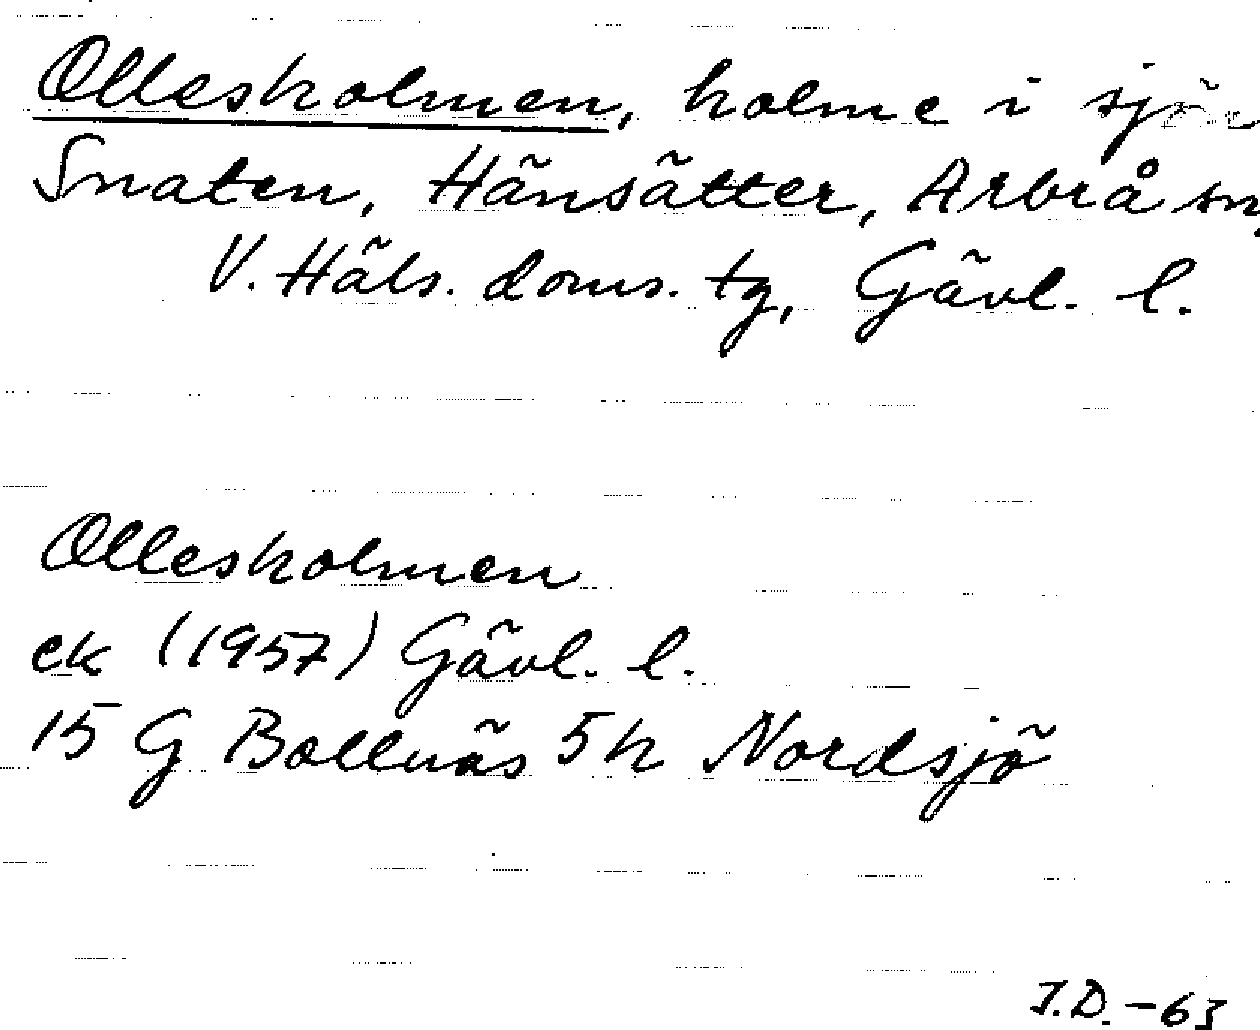 Ollesholmen, holme i sjön
Snaten, Hänsätter, Arbrå sn,
V. Häls. doms. tg, Gävl. l.
Ollesholmen
ek (1957) Gävl. l.
15 G Bollnäs 5 h Nordsjö
J.D. -63